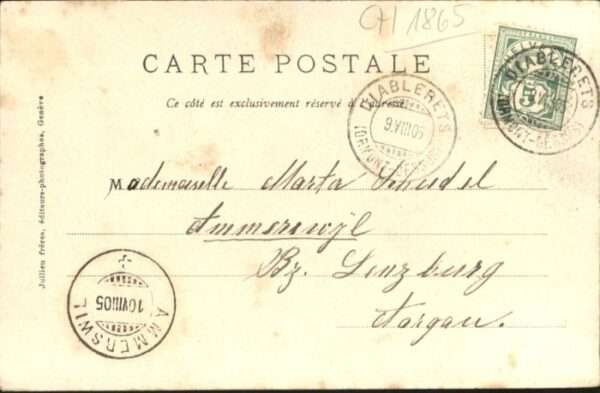 CH 1865
CARTE POSTALE
Ce côté est exclusivement réservé à l'adresse.
HELVETIA
5
DIABLERETS
9.VIII.05
(ORMONT-DESSUS)
DIABLERETS
(ORMONT-DESSUS)
Mademoiselle Marta
Ammerswyl
Bz. Lenzburg
Aargau.
AMMERSWIL
10VIII05
Jullien frères, éditeurs-photographes, Genève